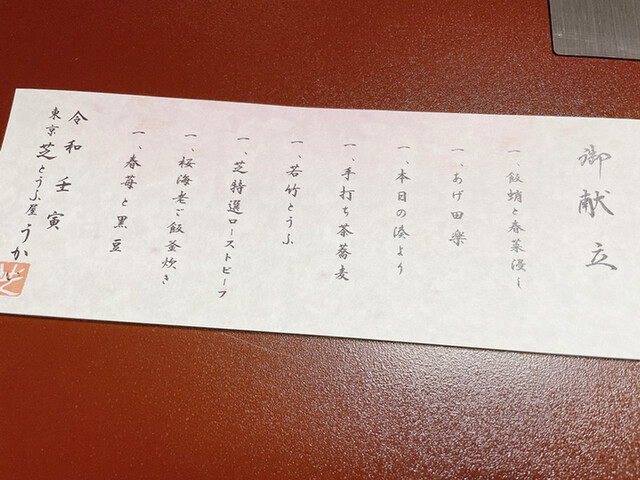 御献立
一、飯蛸と春菜浸し
一、あげ田楽
一、本日の湊より
一、手打ち茶蕎麦
一、若竹とうふ
一、芝特選ローストビーフ
一、桜海老ご飯釜炊き
一、春苺と黒豆
令和壬寅
東京芝とうふ屋うかい